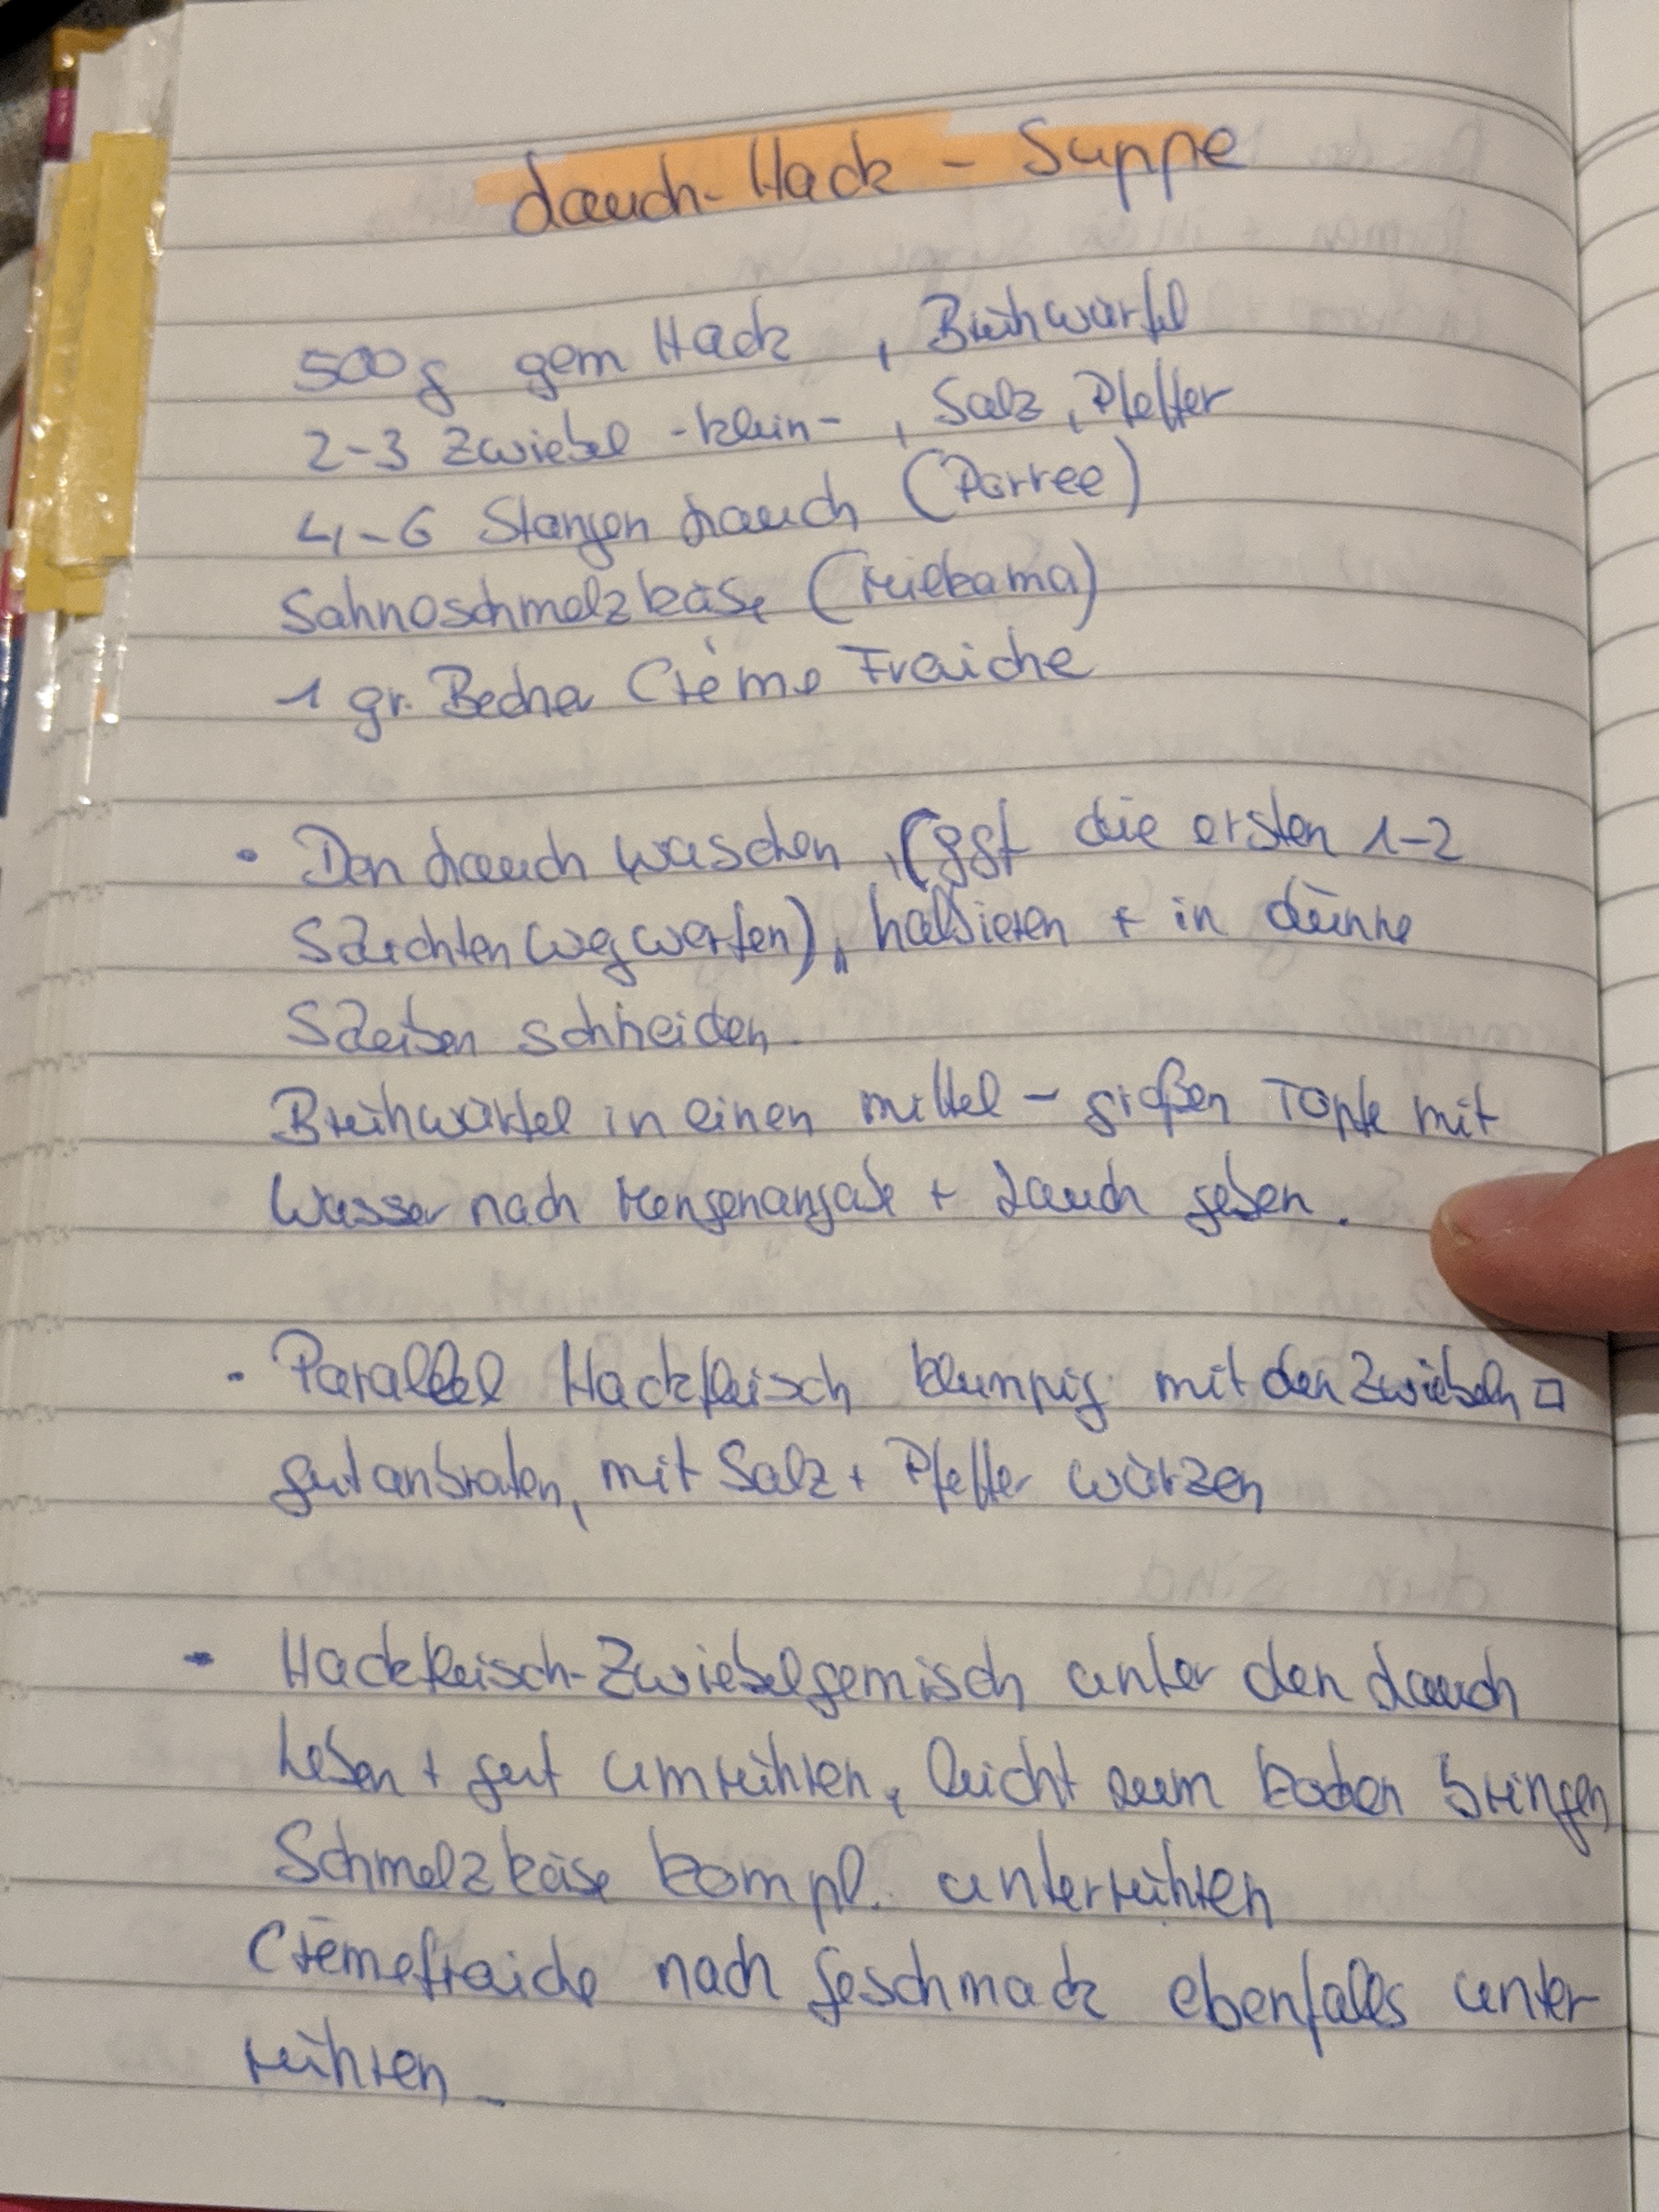 Lauch-Hack-Suppe
500g gem Hack , Brühwürfel
2-3 Zwiebel -klein- , Salz, Pfeffer
4-6 Stangen Lauch (Porree)
Sahneschmelzkäse (Milkama)
1 gr. Becher Crème Fraiche
• Den Lauch waschen, (ggf die ersten 1-2
Schichten wegwerfen), halbieren + in dünne
Scheiben schneiden.
Brühwürfel in einen mittel-großen Topf mit
Wasser nach Mengenangabe + Lauch geben.
• Parallel Hackfleisch klumpig mit den Zwiebeln
gut anbraten, mit Salz + Pfeffer würzen
- Hackfleisch-Zwiebelgemisch unter den Lauch
heben + gut umrühren, leicht zum kochen bringen
Schmelzkäse kompl. unterrühren
Crèmefraiche nach Geschmack ebenfalls unter-
rühren